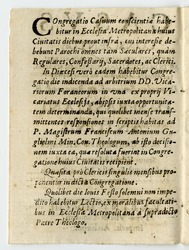 Congregatio Casuum conscientiæ habe-
bitur in Ecclesia Metropolitana huius
Civitatis diebus prout infra, cui interesse de-
bebunt Parochi omnes tam Sæculares, quam
Regulares, Confessarij, Sacerdotes, ac Clerici.
In Diœcesi verò eadem habebitur Congre-
gatio die indicenda ad arbitrium DD. Vica-
riorum Foraneorum in una ex proprij Vi-
cariatus Ecclesijs, absq; iuxta opportunita-
tem determinanda, qui quidem inter trans-
mittent responsiones in scriptis habitas ad
P. Magistrum Franciscum Antonium
Min. Con. Theologum, ab isto deciſum
iuxta ea, quæ resoluta fuerint in Congrega-
tione huius Civitatis recipient.
Quæsita proq Clericis singulis mensibus pro-
ponentur in dicta Congregatione.
Quolibet die Iovis Festo solemni non impe-
dito habebitur Lectio, ex moralibus facultati-
bus in Ecclesia Metropolitana à supradicto
Patre Theologo.